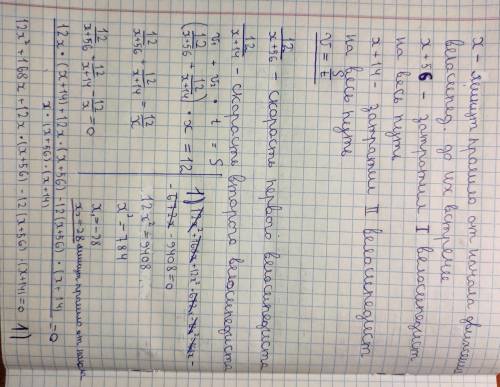 x - минут прошло от начала движения
велосипед. до их встречи
x+56 - затратил I велосипедист
на весь путь
x+14 - затратил II велосипедист
на весь путь
V = S/t
12/(x+56) - скорость первого велосипедиста
12/(x+14) - скорость второго велосипедиста
V₁ + V₂ · t = S
(12/(x+56) + 12/(x+14)) · x = 12
12/(x+56) + 12/(x+14) = 12/x
12/(x+56) + 12/(x+14) - 12/x = 0
12x · (x+14) + 12x · (x+56) - 12(x+56) · (x+14) / x · (x+56) · (x+14) = 0
12x² + 168x + 12x · (x+56) - 12(x+56) · (x+14) = 0 1)
1)
- 672x - 9408 = 0
12x² = 9408
x² = 784
x₁ = -28
x₂ = 28 минут прошло от начала